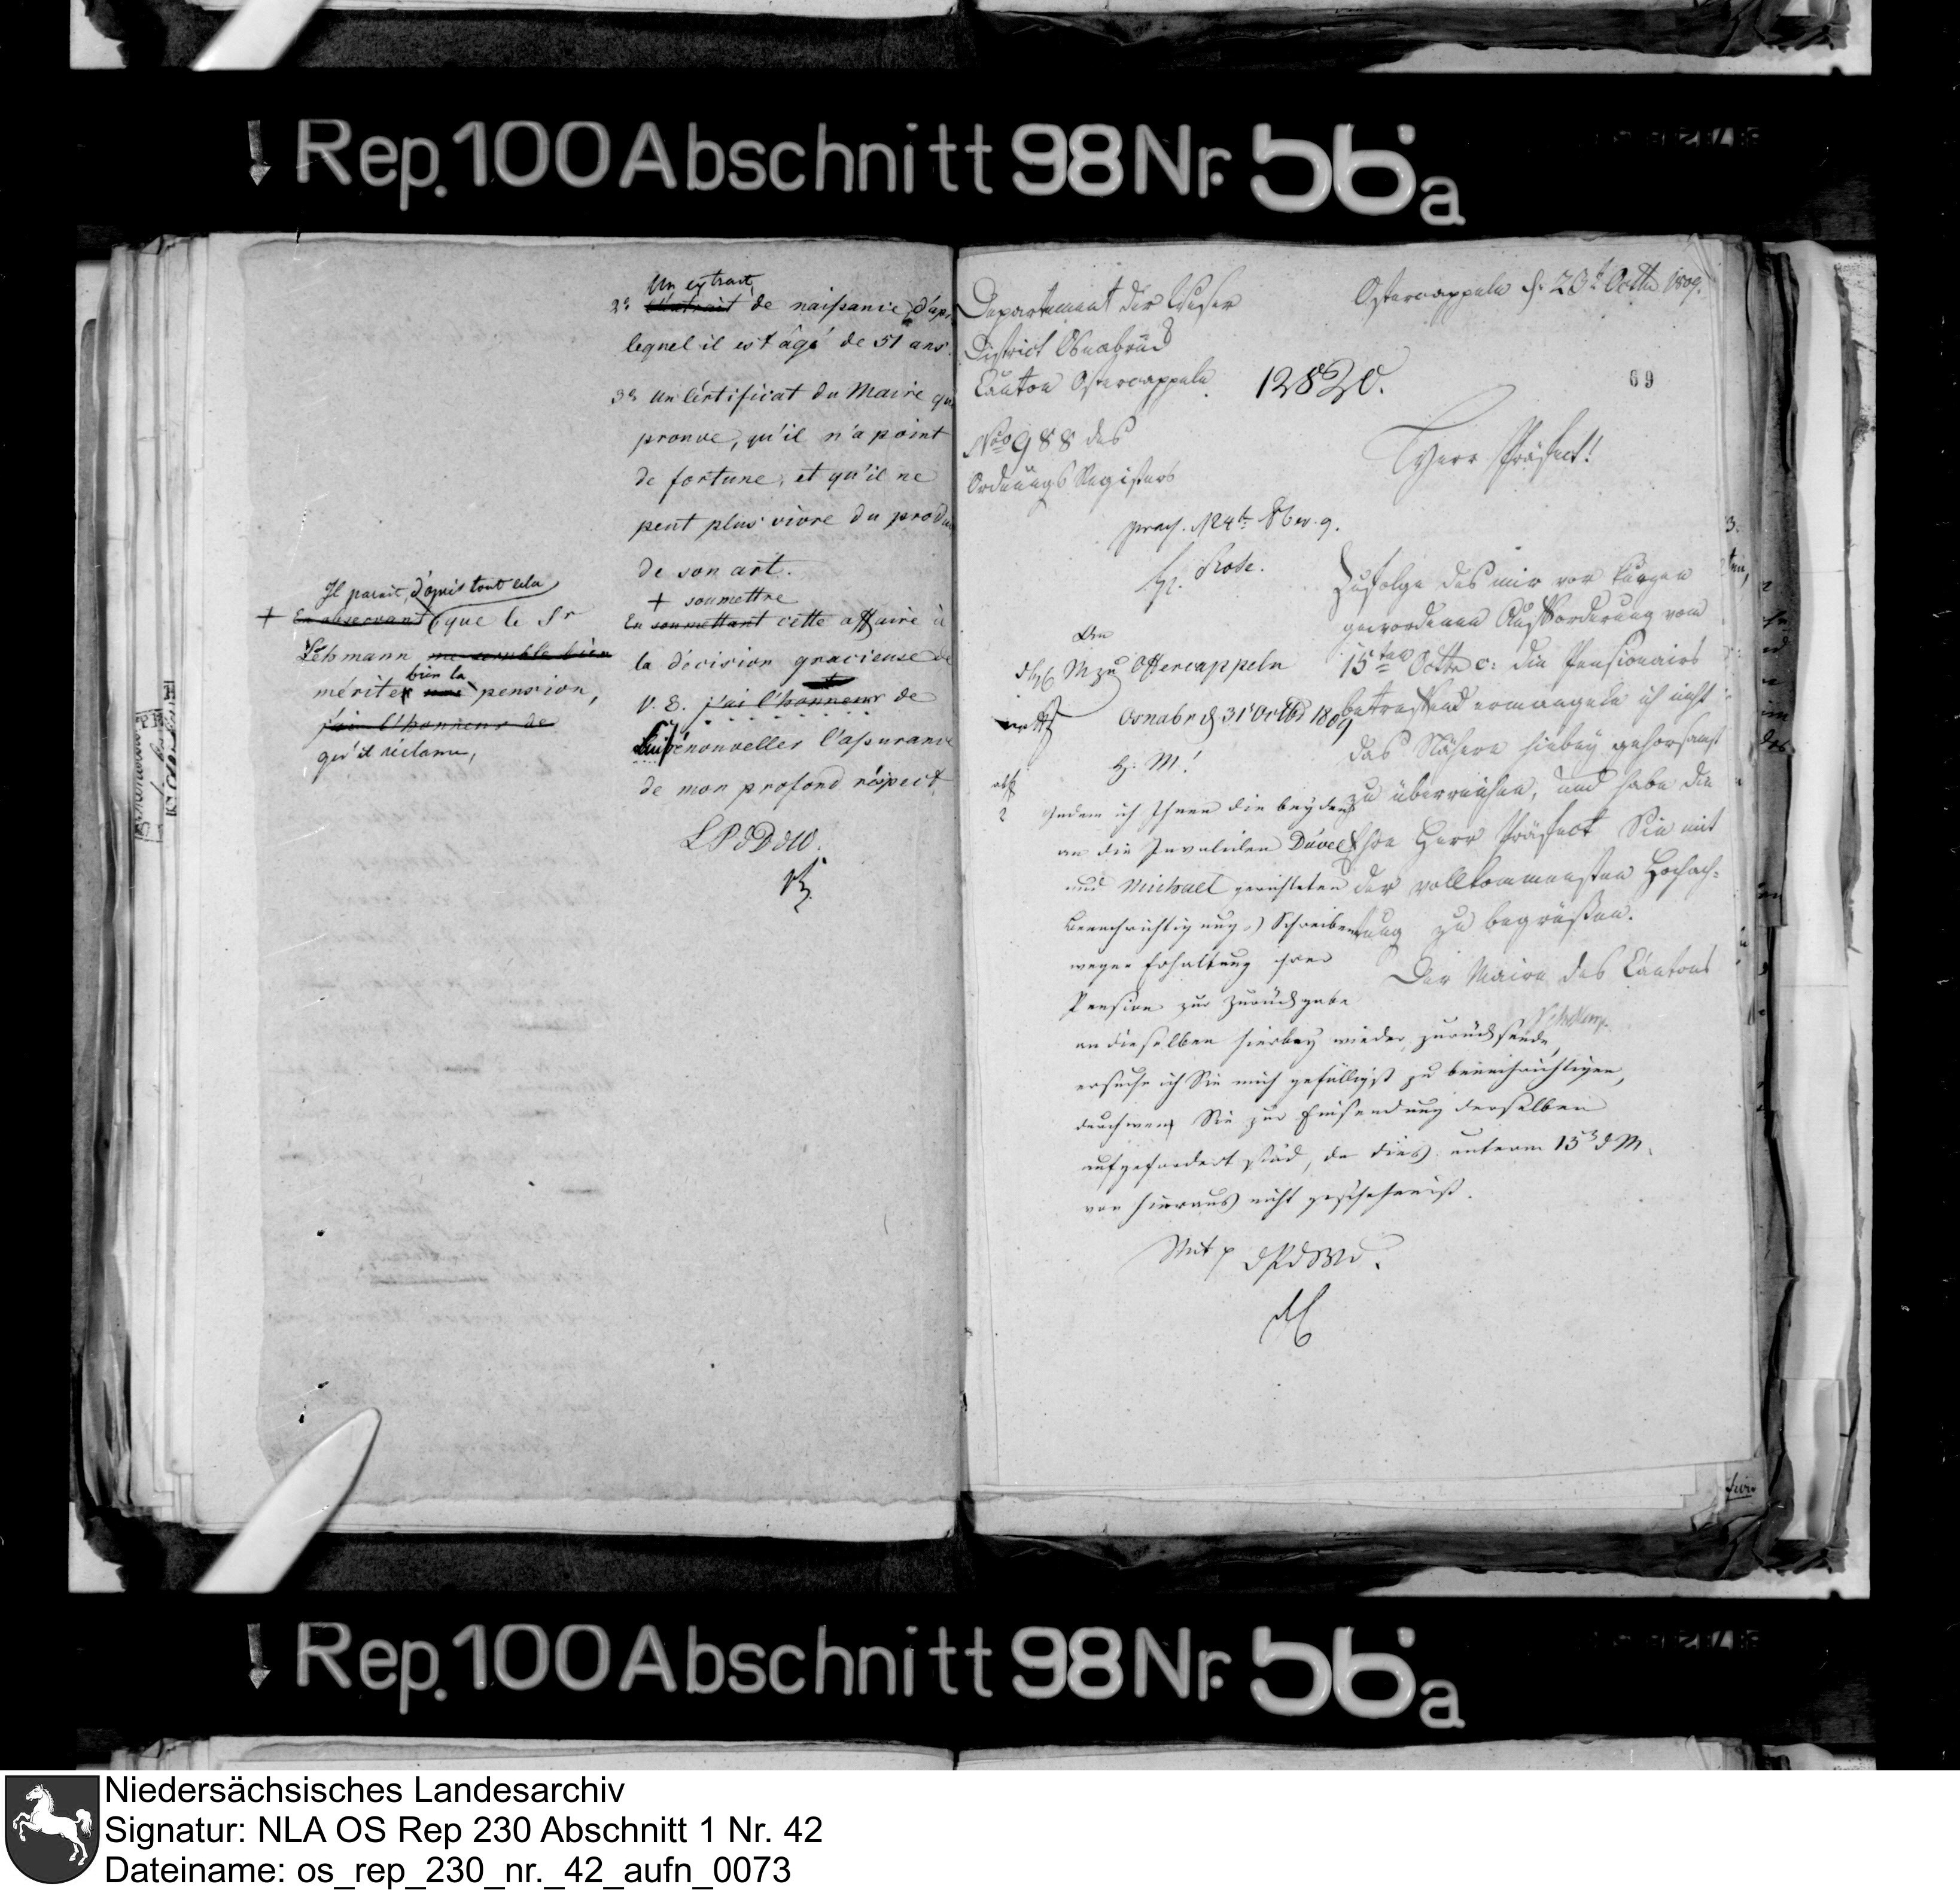 Rep. 100 Abschnitt 98 Nr. 56a
Un extrait
2° L'extrait de naissance d'apr
lequel il est âgé de 51 ans.
3° Un Certificat du Maire qui
prouve, qu'il n'a point
de fortune, et qu'il ne
peut plus vivre du produi
de son art.
+ soumettre
En soumettant cette affaire à
la décision gracieuse de
V. E. j'ai l'honneur de
renouveller l'assurance
de mon profond réspect
L P d D d W.
Il parait, d'après tout cela
+ En observant que le Sr
Lehmann me semble bien
bien la
mériter une pension,
j'ai l'honneur de
qu'il réclame,
Departement der Weser
District Osnabrück
Canton Ostercappeln
No 988 des
Ordnungs Registers
Ostercappeln d. 23t Octbr 1809.
12820.
69
Herr Präfect!
praes. 24t 8br. 9.
H. Rose.
Zufolge des mir vor kurzen
gewordenen Aufforderung vom
15ten Octbr c. die Pensionairs
betreffend ermangele ich nicht
das Nähere hiebey gehorsamst
zu überreichen, und habe die
Ehre Herr Präfect Sie mit
der vollkommensten Hochach-
tung zu begrüßen.
Der Maire des Cantons
An
M zu Ostercappeln
Osnabr d 31t Octbr 1809
H. M.!
Indem ich Ihnen die beyden
an die Invaliden Düvel
und Michael gerichteten
Benachrichtigungs Schreiben
wegen Erhaltung ihrer
Pension zur Zurückgabe
an dieselben hierbey wieder zurücksende,
ersuche ich Sie mich gefälligst zu benachrichtigen,
durch wen Sie zur Einsendung derselben
aufgefordert sind, da dies unterm 15 d M.
von hieraus nicht geschehen ist.
Mit p d P d W D.
Rep. 100 Abschnitt 98 Nr. 56a
Niedersächsisches Landesarchiv
Signatur: NLA OS Rep 230 Abschnitt 1 Nr. 42
Dateiname: os_rep_230_nr._42_aufn_0073